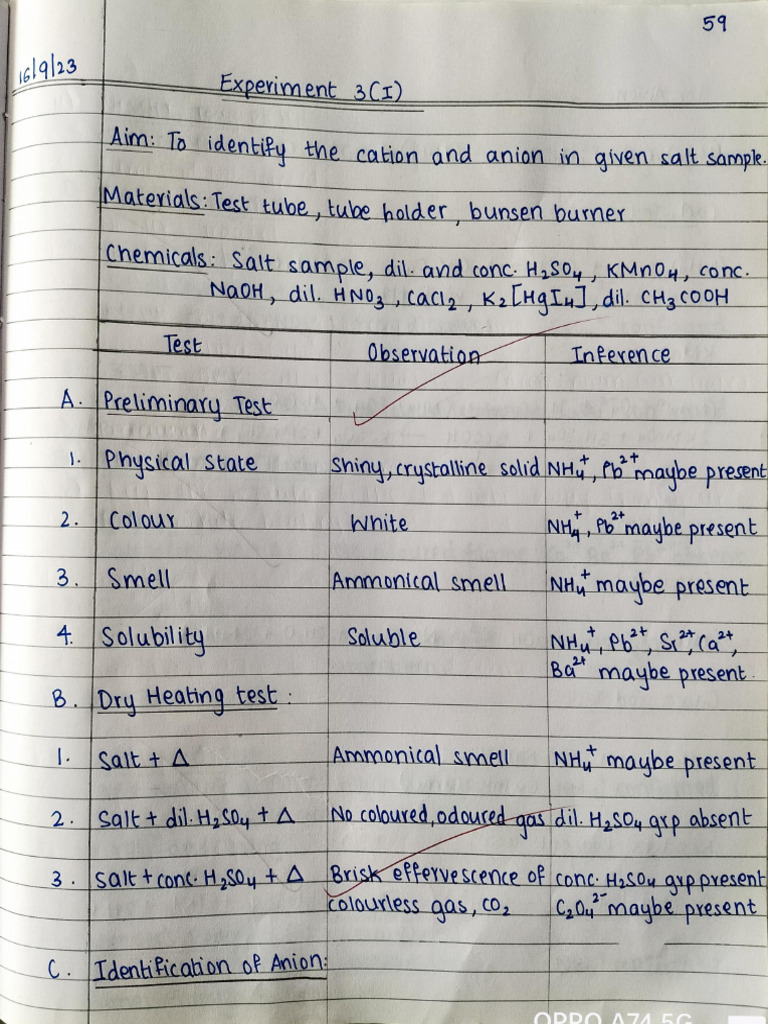 59
16/9/23
Experiment 3(I)
Aim: To identify the cation and anion in given salt sample.
Materials: Test tube, tube holder, bunsen burner
Chemicals: Salt sample, dil. and conc. H₂SO₄, KMnO₄, conc.
NaOH, dil. HNO₃, CaCl₂, K₂[HgI₄], dil. CH₃COOH
Test Observation Inference
A. Preliminary Test
1. Physical State Shiny, crystalline solid NH₄⁺, Pb²⁺ maybe present
2. Colour White NH₄⁺, Pb²⁺ maybe present
3. Smell Ammonical smell NH₄⁺ maybe present
4. Solubility Soluble NH₄⁺, Pb²⁺, Sr²⁺, Ca²⁺,
Ba²⁺ maybe present.
B. Dry Heating test:
1. Salt + Δ Ammonical smell NH₄⁺ maybe present
2. Salt + dil. H₂SO₄ + Δ No coloured, odoured gas dil. H₂SO₄ grp absent
3. Salt + conc. H₂SO₄ + Δ Brisk effervescence of conc. H₂SO₄ grp present
colourless gas, CO₂ C₂O₄²⁻ maybe present
C. Identification of Anion:
OPPO A74 5G